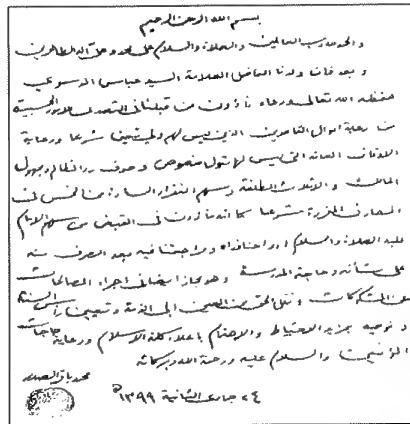 بسم الله الرحمن الرحيم
والحمد لله رب العالمين والصلاة والسلام على محمد وعلى آله الطاهرين
وبعد فان ولدنا الفاضل العلامة السيد عباس الموسوي
حفظه الله تعالى ورعاه مأذون من قبلنا في التصدي للامور الحسبية
من رعاية اموال القاصرين الذين ليس لهم ولي شرعا ورعاية
الاوقاف العامة التي ليس لها متول منصوص وصرف رد المظالم ومجهول
المالك والاثلاث المطلقة وسهم الفقراء السادة من الخمس في
المصارف المقررة شرعا كما انه مأذون في القبض من سهم الامام
عليه الصلاة والسلام ارواحنا فداه ومراجعتنا فيه بعد الصرف منه
على شأنه وحاجة المدرسة وهو مجاز ايضا في اجراء المصالحات
على المشكوكات ونقل الحق من العين الى الذمة وتعيين رأس السنة
ونوصيه بمزيد الاحتياط والاهتمام باعلاء كلمة الاسلام ورعاية حاجات
المؤمنين والسلام عليه ورحمة الله وبركاته
محمد باقر الصدر
٢٤ جمادى الثانية ١٣٩٩ ه